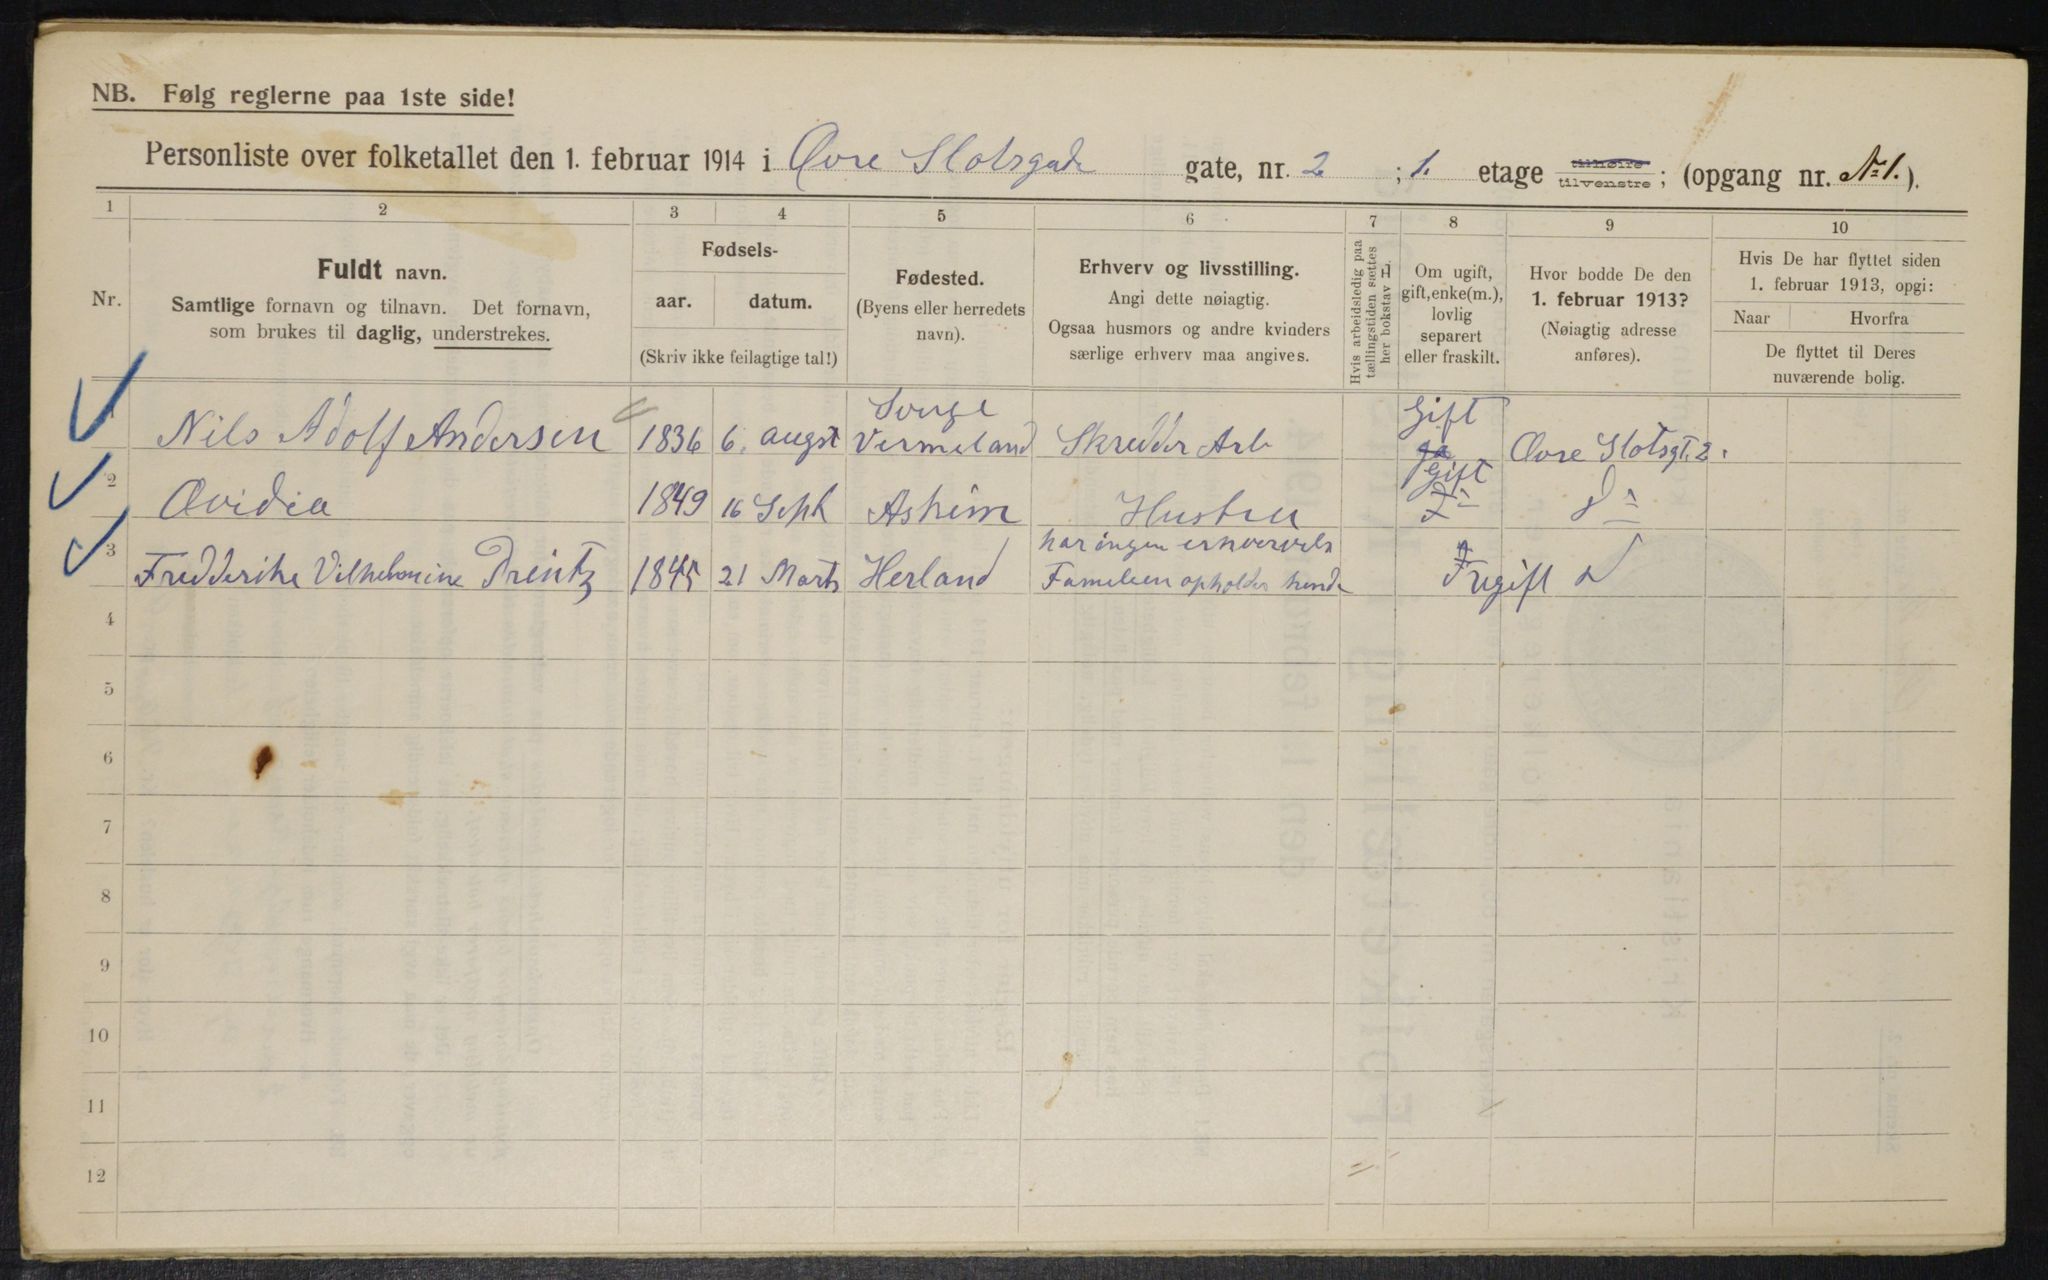 NB. Følg reglerne paa 1ste side!
Personliste over folketallet den 1. februar 1914 i Øvre Slotsgade gate, nr. 2 ; 1. etage tilhøire tilvenstre; (opgang nr. No 1.).
1 2 3 4 5 6 7 8 9 10
Nr.
Fuldt navn.
Samtlige fornavn og tilnavn. Det fornavn,
som brukes til daglig, understrekes.
Fødsels-
aar. datum.
(Skriv ikke feilagtige tal!)
Fødested.
(Byens eller herredets
navn).
Erhverv og livsstilling.
Angi dette nøiagtig.
Ogsaa husmors og andre kvinders
særlige erhverv maa angives.
Hvis arbeidsledig paa
tællingstiden sættes
her bokstav L.
Om ugift,
gift, enke(m.),
lovlig
separert
eller fraskilt.
Hvor bodde De den
1. februar 1913?
(Nøiagtig adresse
anføres).
Hvis De har flyttet siden
1. februar 1913, opgi:
Naar Hvorfra
De flyttet til Deres
nuværende bolig.
1 Nils Adolf Andersen 1836 6. augst Sverge Vermeland Skredder Arb Gift Øvre Slotsgt. 2.
2 Ovidia 1849 16 Sept Askim Hustru Gift D
3 Fredderike Vilhelmine Prentz 1845 21 Marts Herland har ingen erhvervels
Familien opholder hende Ugift D
4
5
6
7
8
9
10
11
12